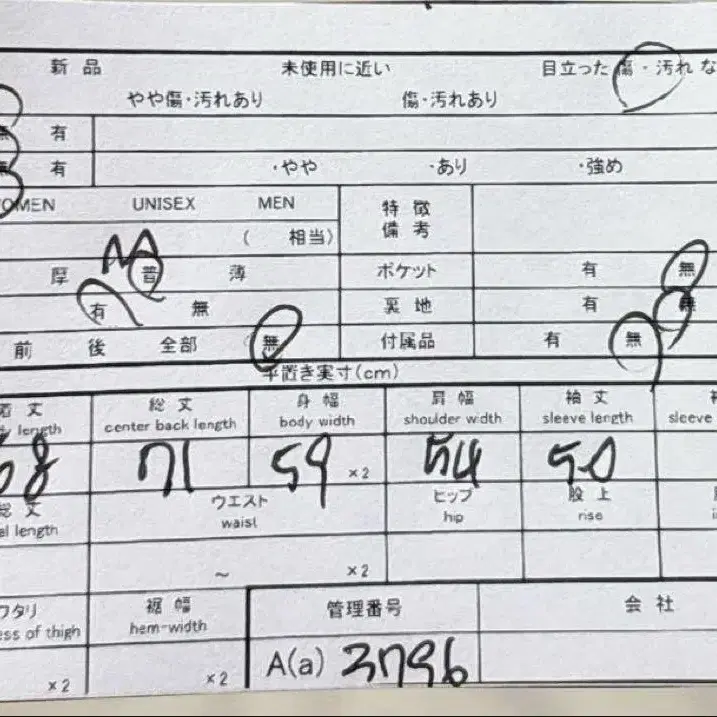 新品 未使用に近い 目立った傷・汚れな
やや傷・汚れあり 傷・汚れあり
無 有
有 ・やや ・あり ・強め
OMEN UNISEX MEN 特徴
備考
M ( 相当)
厚 普 薄 ポケット 有 無
有 無 裏地 有 無
前 後 全部 無 付属品 有 無
平置き実寸(cm)
着丈 総丈 身幅 肩幅 袖丈
length center back length body width shoulder width sleeve length sleeve
68 71 59 ×2 54 50
総丈 ウエスト ヒップ 股上
al length waist hip rise
~ ×2
ワタリ 裾幅 管理番号 会社
ess of thigh hem-width
×2 ×2 A(a) 3796